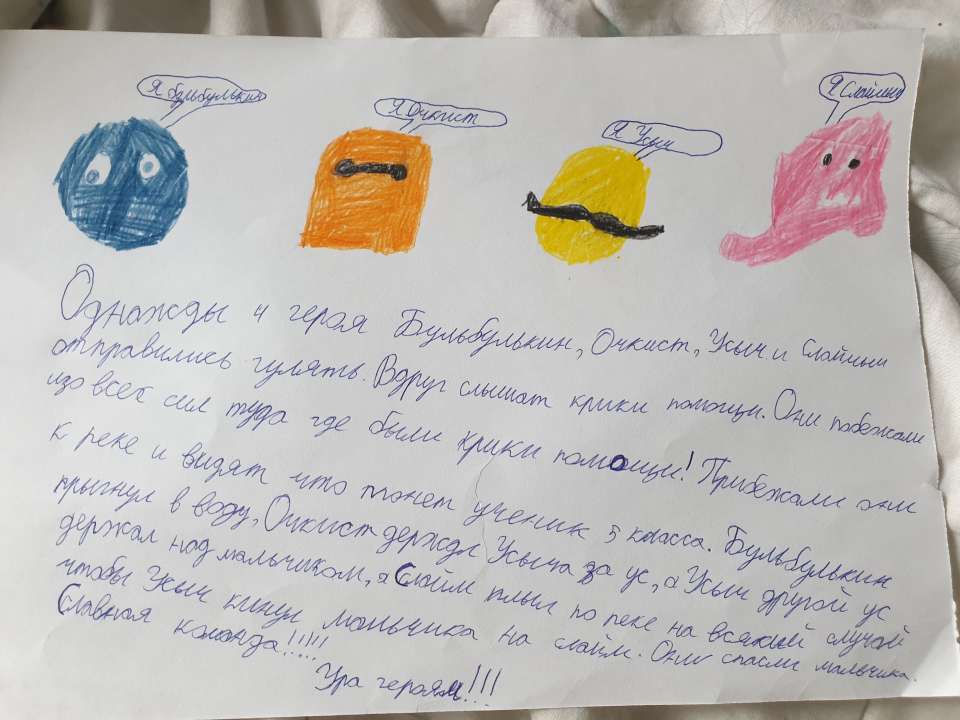 Я бульбулькин
Я Очкист
Я Усыч
Я Слаймы
Однажды 4 героя Бульбулькин, Очкист, Усыч и Слаймы
отправились гулять. Вдруг слышат крики помощи. Они побежали
изо всех сил туда где были крики помощи! Прибежали они
к реке и видят что тонет ученик 5 класса. Бульбулькин
прыгнул в воду, Очкист держал Усыча за ус, а Усыч другой ус
держал над мальчиком, а Слайм плыл по реке на всякий случай
чтобы Усыч кинул мальчика на слайм. Они спасли мальчика.
Славная команда!!!!!
Ура героям!!!